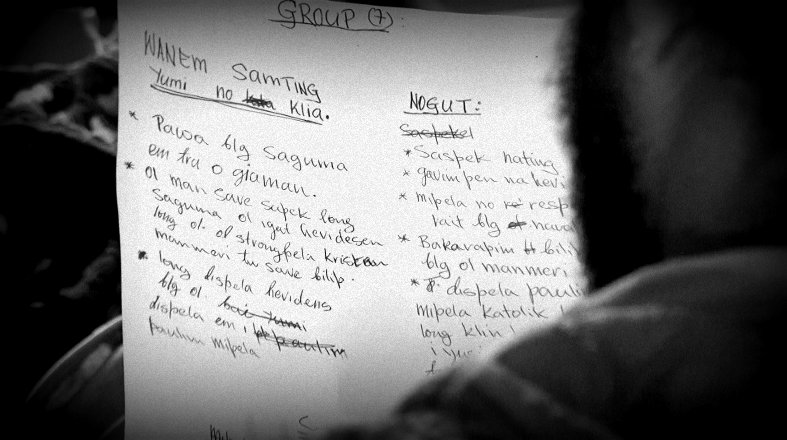 GROUP (7):
WANEM SAMTING
Yumi no klia.
* Pawa blg saguma
em tru o giaman.
* Ol man save sapek long
saguma ol igat hevidesen
long ol. ol strongpela kristen
manmeri tu save bilip.
* long dispela hevidens
blg ol bai yumi
dispela em i
paulim mipela
NOGUT:
Saspekel
* Saspek nating
* gavim pen na hevi
* mipela no resp
rait blg
* Bakarapim bili
blg ol manmeri
* dispela pauli
mipela katolik
long klin